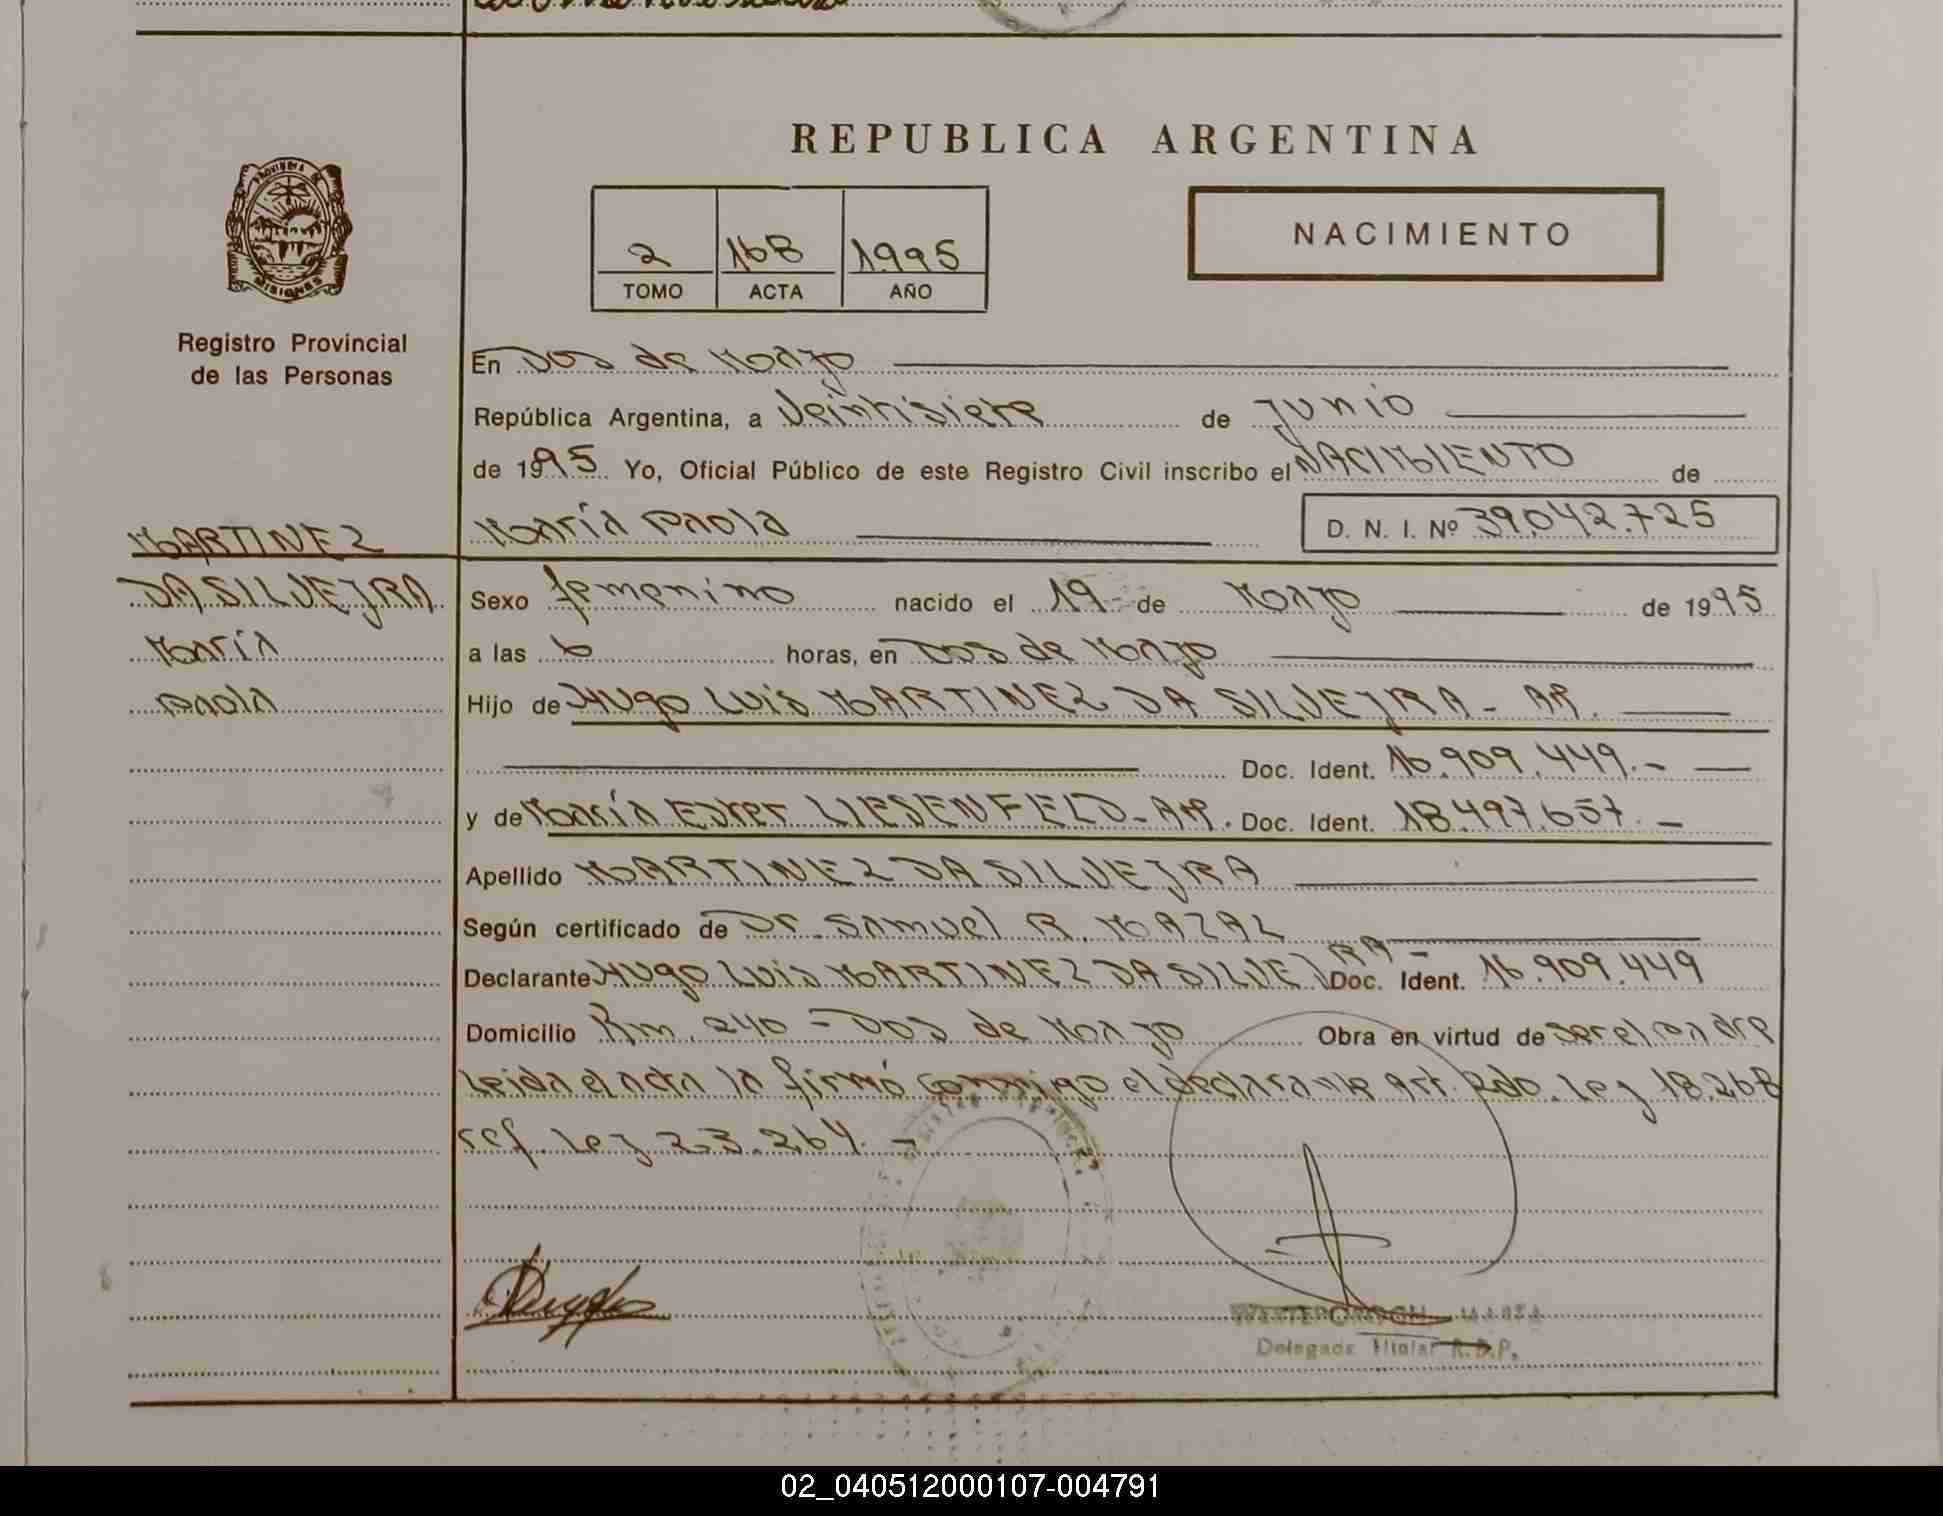 REPUBLICA ARGENTINA
PROVINCIA DE MISIONES
2 168 1995
TOMO ACTA AÑO
NACIMIENTO
Registro Provincial
de las Personas
En Dos de Marzo
República Argentina, a Veintisiete de Junio
de 1995 Yo, Oficial Público de este Registro Civil inscribo el NACIMIENTO de
María Paola D. N. I. Nº 39.042.725
MARTINEZ
DA SILVEJRA
María
Paola
Sexo femenino nacido el 19 de Marzo de 1995
a las 6 horas, en Dos de Marzo
Hijo de Hugo Luis MARTINEZ DA SILVEJRA - AR.
Doc. Ident. 16.909.449.-
y de María Ester LIESENFELD - AR. Doc. Ident. 18.497.657. -
Apellido MARTINEZ DA SILVEJRA
Según certificado de Dr. Samuel R. MAZAL
Declarante Hugo Luis MARTINEZ DA SILVEJRA - Doc. Ident. 16.909.449
Domicilio Rim. 240 = Dos de Marzo Obra en virtud de ser el padre
Leida el acta la firmó conmigo el declarante Art. 2do. Ley 18.268
ref. Ley 23.264. -
Delegado Titular R.D.P.
02_040512000107-004791